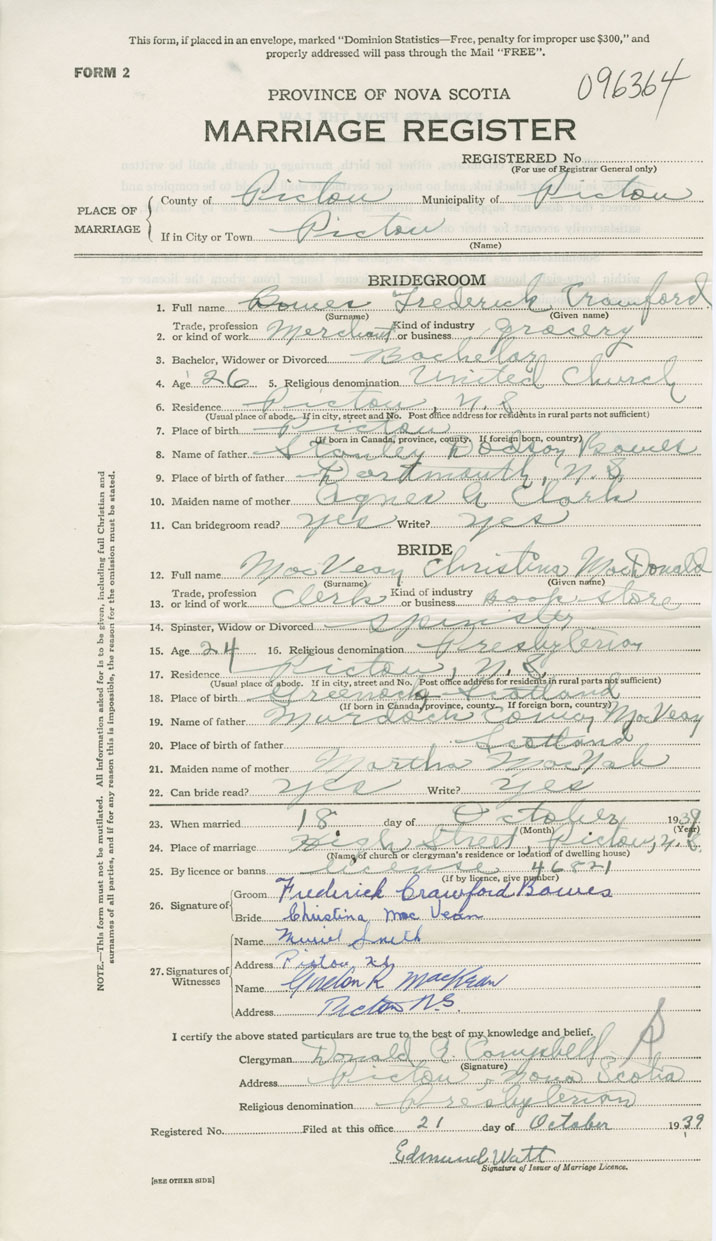 This form, if placed in an envelope, marked "Dominion Statistics—Free, penalty for improper use $300," and
properly addressed will pass through the Mail "FREE".
FORM 2
096364
PROVINCE OF NOVA SCOTIA
MARRIAGE REGISTER
REGISTERED No.
(For use of Registrar General only)
PLACE OF MARRIAGE
County of Pictou Municipality of Pictou
If in City or Town Pictou
(Name)
BRIDEGROOM
1. Full name Bowes Frederick Crawford
(Surname) (Given name)
2. Trade, profession or kind of work Merchant Kind of industry or business grocery
3. Bachelor, Widower or Divorced Bachelor
4. Age 26 5. Religious denomination United Church
6. Residence Pictou, N.S.
(Usual place of abode. If in city, street and No. Post office address for residents in rural parts not sufficient)
7. Place of birth Pictou
(If born in Canada, province, county. If foreign born, country)
8. Name of father Stanley Dodson Bowes
9. Place of birth of father Dartmouth, N.S.
10. Maiden name of mother Agnes A Clark
11. Can bridegroom read? yes Write? yes
BRIDE
12. Full name MacVean Christina MacDonald
(Surname) (Given name)
13. Trade, profession or kind of work Clerk Kind of industry or business store
14. Spinster, Widow or Divorced Spinster
15. Age 24 16. Religious denomination Presbyterian
17. Residence Pictou, N.S.
(Usual place of abode. If in city, street and No. Post office address for residents in rural parts not sufficient)
18. Place of birth Greenock Scotland
(If born in Canada, province, county. If foreign born, country)
19. Name of father Murdoch MacVean
20. Place of birth of father Scotland
21. Maiden name of mother Martha MacNab
22. Can bride read? yes Write? yes
23. When married 18 day of October 1939
(Month) (Year)
24. Place of marriage High Street, Pictou, N.S.
(Name of church or clergyman's residence or location of dwelling house)
25. By licence or banns license 46821
(If by licence, give number)
26. Signature of
Groom Frederick Crawford Bowes
Bride Christina Mac Vean
27. Signatures of Witnesses
Name Muriel Smith
Address Pictou N.S.
Name Gordon R. MacKean
Address Pictou N.S.
I certify the above stated particulars are true to the best of my knowledge and belief.
Clergyman Donald Campbell
(Signature)
Address Pictou, Nova Scotia
Religious denomination Presbyterian
Registered No. Filed at this office 21 day of October 1939
Edmund Watt
Signature of Issuer of Marriage Licence.
[SEE OTHER SIDE]
NOTE.—This form must not be mutilated. All information asked for is to be given, including full Christian and
surnames of all parties, and if for any reason this is impossible, the reason for the omission must be stated.